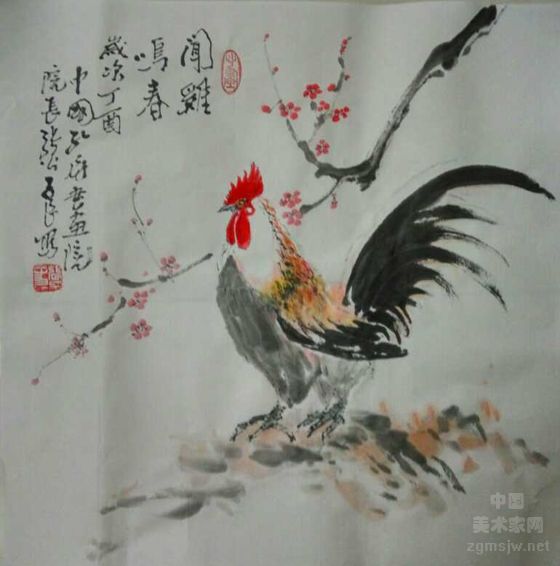 聞雞
鳴春
歲次丁酉
中國孔府書画院
院長張
寫
中国
美术家网
zgmsjw.net